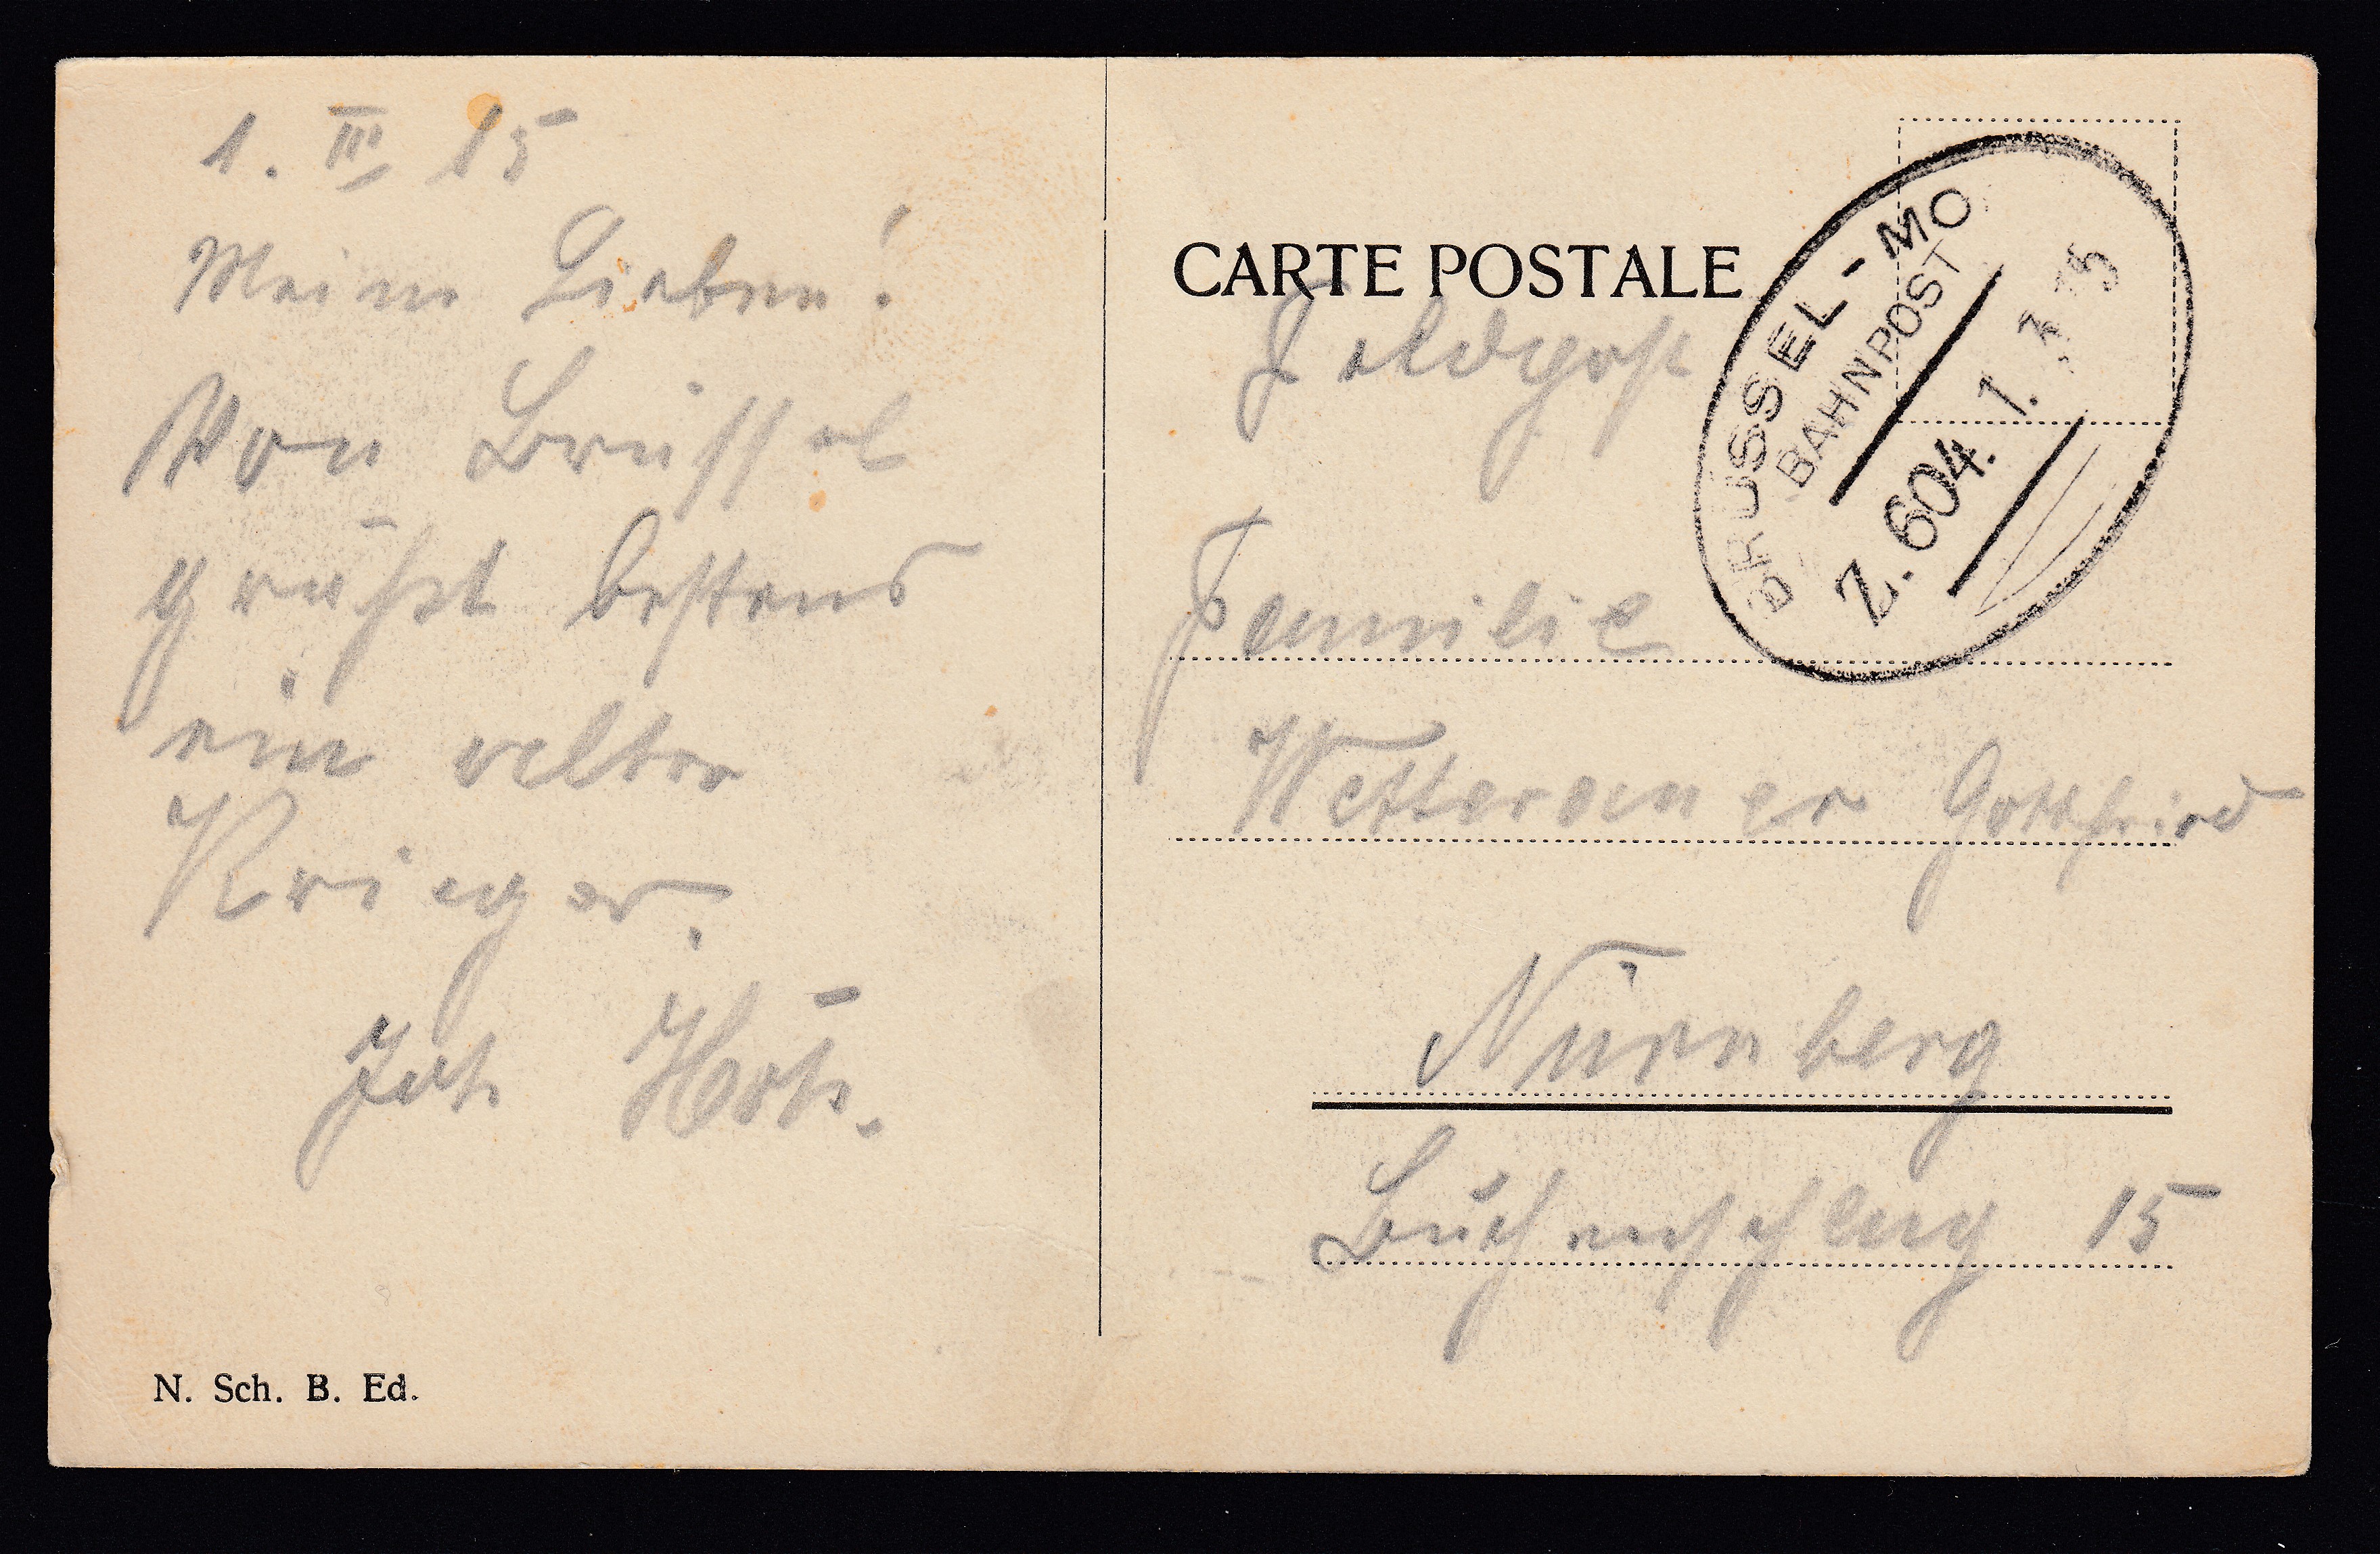 1. III 15
Meine Lieben!
Von Brüssel
grüßt bestens
ein alter
Krieger.
Joh
N. Sch. B. Ed.
CARTE POSTALE
BRÜSSEL-MO
BAHNPOST
Z. 604. 1. 3. 15
Feldpost
Familie
Wetterauer Gottfried
Nürnberg
15